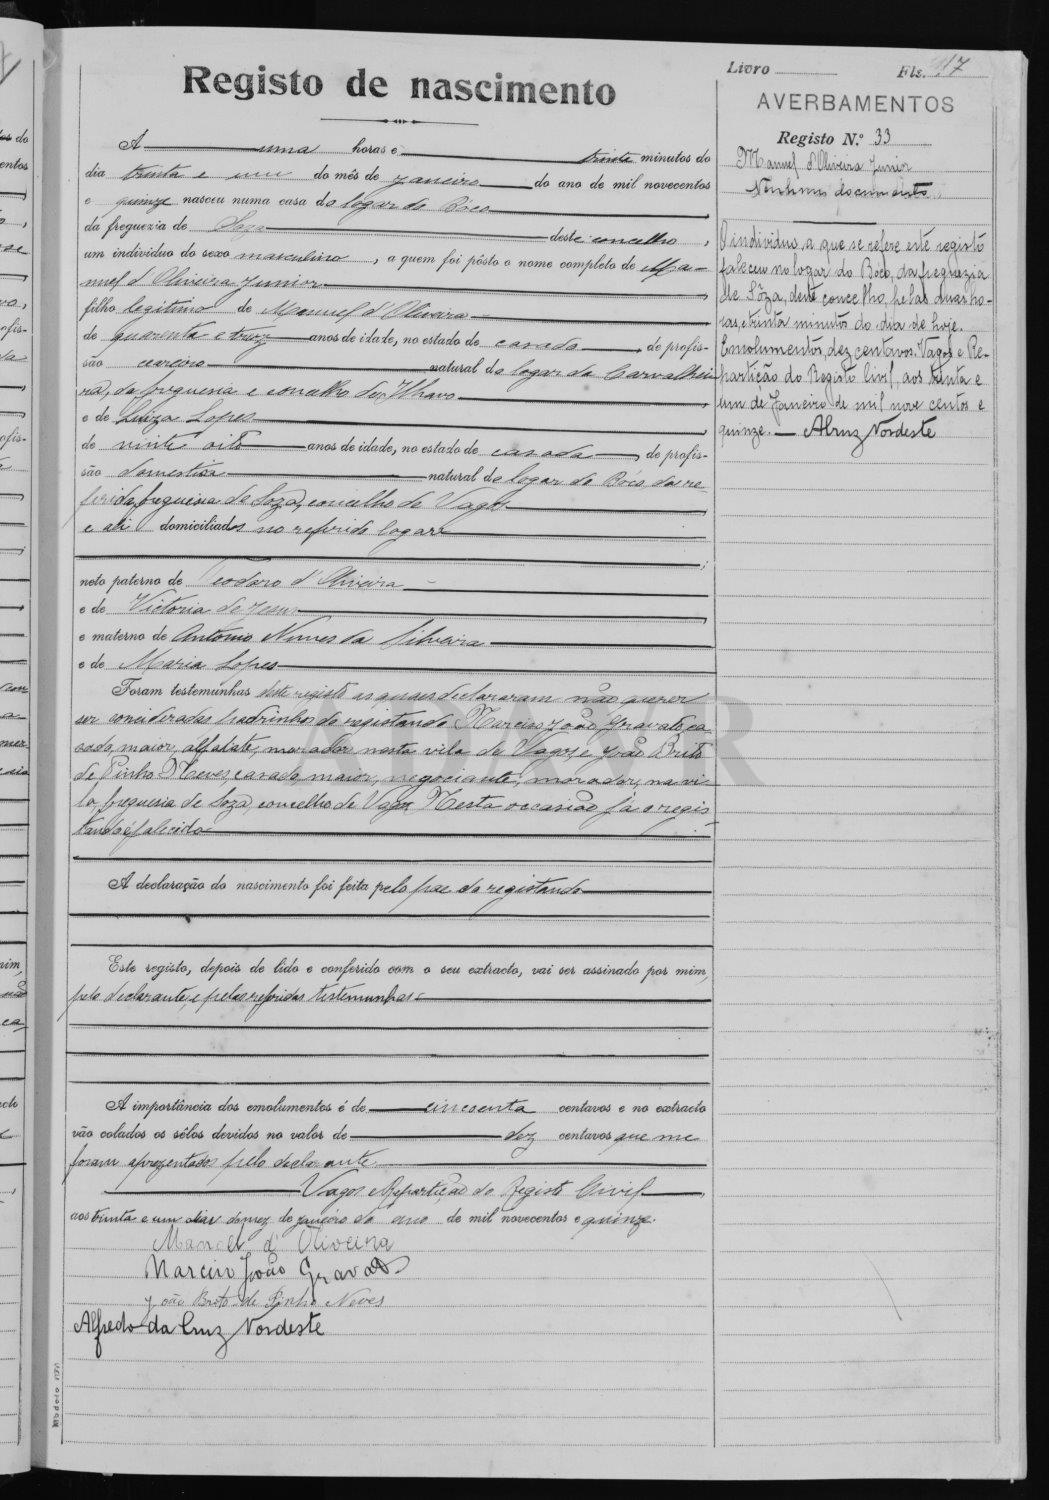 Registo de nascimento
A uma horas e trinta minutos do
dia trinta e um do mês de Janeiro do ano de mil novecentos
e quinze nasceu numa casa do logar do Bôco
da freguezia de Soza deste concelho,
um individuo do sexo masculino, a quem foi pôsto o nome completo de Ma-
nuel d'Oliveira Junior
filho legitimo de Manuel d'Oliveira
de quarenta e trez anos de idade, no estado de casado, de profis-
são natural do logar da Carvalhei
ra, da freguesia e concelho de Ilhavo
e de Luiza Lopes
de vinte oito anos de idade, no estado de casada, de profis-
são domestica natural do logar do Bôco da re
ferida freguesia de Soza, concelho de Vagos
e ali domiciliados no referido logar
neto paterno de Teodoro d'Oliveira
e de Victoria de Jesus
e materno de Antonio Nunes da Silveira
e de Maria Lopes
Foram testemunhas deste registo as quaes declararam não querer
ser consideradas padrinhos do registando Marcias João Gravato, ca
sado, maior, alfaiate, morador nesta vila de Vagos, e João Brito
de Pinho Neves, casado, maior, negociante, morador, na vi-
la, freguesia de Soza, concelho de Vagos Nesta occasião já o regis
tando é falecido
A declaração do nascimento foi feita pelo pae do registando
Este registo, depois de lido e conferido com o seu extracto, vai ser assinado por mim,
pelo declarante, e pelas referidas testemunhas
A importância dos emolumentos é de cincoenta centavos e no extracto
vão colados os sêlos devidos no valor de dez centavos que me
foram aprezentados pelo declarante
Vagos e Repartição do Registo Civil,
aos trinta e um dias do mez de Janeiro do ano de mil novecentos e quinze.
Manoel d'Oliveira
Marcias João Gravato
João Brito de Pinho Neves
Alfredo da Cruz Nordeste
Livro Fls. 17
AVERBAMENTOS
Registo N.º 33
Manuel d'Oliveira Junior
Nenhum documento.
O individuo a que se refere este registo
faleceu no logar do Bôco, da freguezia
de Sôza, deste concelho, pelas duas ho-
ras, e trinta minutos do dia de hoje.
Emolumentos, dez centavos. Vagos e Re-
partição do Registo Civil, aos trinta e
um de Janeiro de mil nove centos e
quinze. — ACruz Nordeste
ADAVR